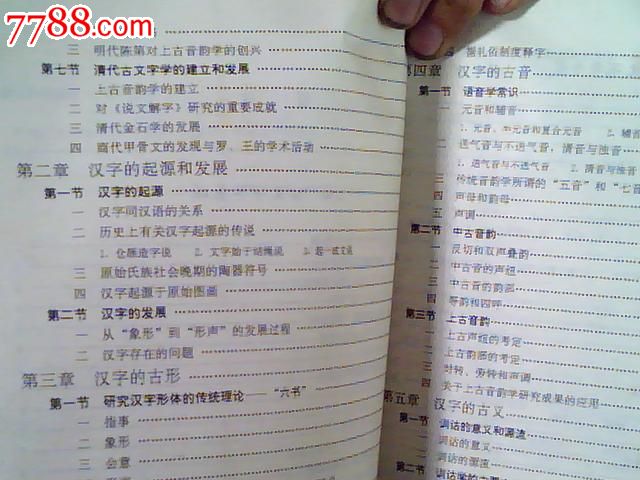 7788.com
三 明代陈第对上古音韵学的创兴
第七节 清代古文字学的建立和发展
一 上古音韵学的建立
二 对《说文解字》研究的重要成就
三 清代金石学的发展
四 商代甲骨文的发现与罗、王的学术活动
第二章 汉字的起源和发展
第一节 汉字的起源
一 汉字同汉语的关系
二 历史上有关汉字起源的传说
1. 仓颉造字说 2. 文字始于结绳说 3. 起一成文说
三 原始氏族社会晚期的陶器符号
四 汉字起源于原始图画
第二节 汉字的发展
一 从“象形”到“形声”的发展过程
二 汉字存在的问题
第三章 汉字的古形
第一节 研究汉字形体的传统理论——“六书”
一 指事
二 象形
三 会意
四 据礼俗制度释字
第四章 汉字的古音
第一节 语音学常识
一 元音和辅音
1. 元音、半元音和复合元音 2. 辅音
二 送气音与不送气音，清音与浊音
1. 送气音与不送气音 2. 清音与浊音
三 传统音韵学所谓的“五音”和“七音
四 声母和韵母
五 声调
第二节 中古音韵
一 反切和双声叠韵
二 中古音的声纽
三 中古音的韵部
四 等韵和四呼
第三节 上古音韵
一 上古声纽的考定
二 上古韵部的考定
三 对转、旁转和声调
四 关于上古音韵学研究成果的应用
第五章 汉字的古义
第一节 训诂的意义和源流
一 训诂的意义
二 训诂的源流
第二节